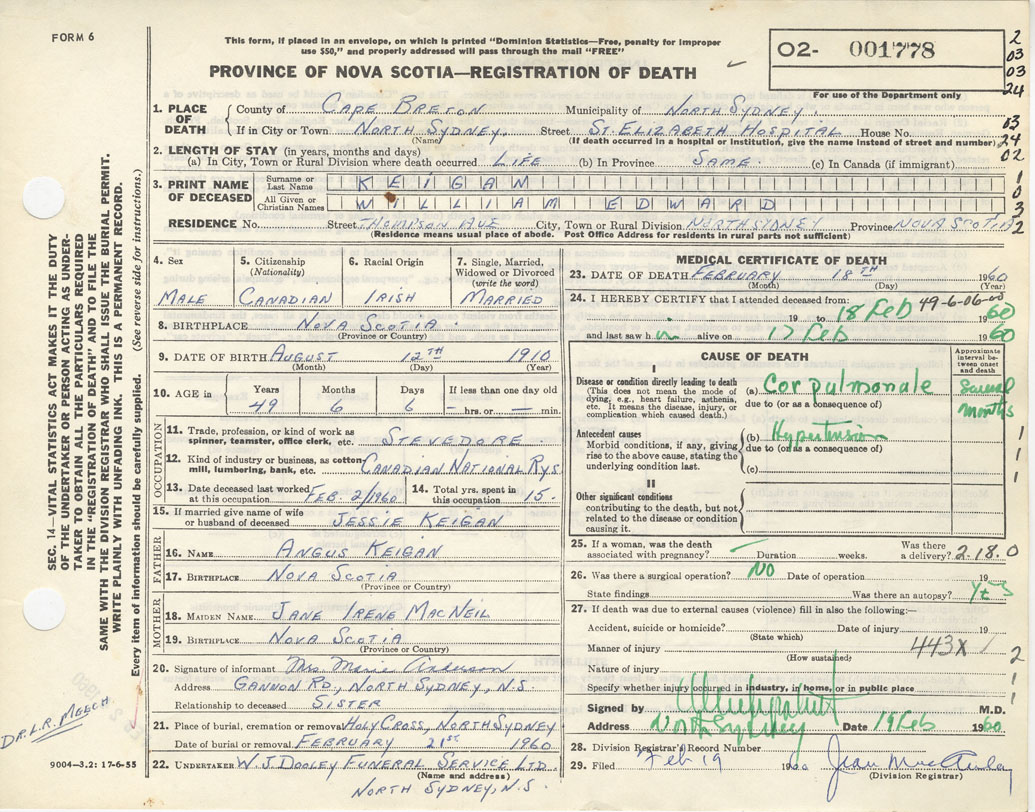 FORM 6
This form, if placed in an envelope, on which is printed "Dominion Statistics—Free, penalty for improper
use $50," and properly addressed will pass through the mail "FREE"
PROVINCE OF NOVA SCOTIA—REGISTRATION OF DEATH
O2- 001778
For use of the Department only
2
03
03
24
03
24
02
1
0
3
2
1. PLACE OF DEATH
County of CAPE BRETON Municipality of NORTH SYDNEY.
If in City or Town NORTH SYDNEY. Street ST. ELIZABETH HOSPITAL House No.
(Name) (If death occurred in a hospital or institution, give the name instead of street and number)
2. LENGTH OF STAY (in years, months and days)
(a) In City, Town or Rural Division where death occurred LIFE (b) In Province SAME. (c) In Canada (if immigrant)
3. PRINT NAME OF DECEASED
Surname or Last Name KEIGAN
All Given or Christian Names WILLIAM EDWARD
RESIDENCE No. Street THOMPSON AVE City, Town or Rural Division NORTH SYDNEY Province NOVA SCOTIA
(Residence means usual place of abode. Post Office Address for residents in rural parts not sufficient)
4. Sex
MALE
5. Citizenship (Nationality)
CANADIAN
6. Racial Origin
IRISH
7. Single, Married, Widowed or Divorced (write the word)
MARRIED
8. BIRTHPLACE NOVA SCOTIA.
(Province or Country)
9. DATE OF BIRTH AUGUST 12TH 1910
(Month) (Day) (Year)
10. AGE in
Years Months Days If less than one day old
49 6 6 — hrs. or — min.
OCCUPATION
11. Trade, profession, or kind of work as spinner, teamster, office clerk, etc. STEVEDORE.
12. Kind of industry or business, as cotton-mill, lumbering, bank, etc. CANADIAN NATIONAL RYS
13. Date deceased last worked at this occupation FEB. 2/1960
14. Total yrs. spent in this occupation 15.
15. If married give name of wife or husband of deceased JESSIE KEIGAN
FATHER
16. NAME ANGUS KEIGAN
17. BIRTHPLACE NOVA SCOTIA
(Province or Country)
MOTHER
18. MAIDEN NAME JANE IRENE MACNEIL
19. BIRTHPLACE NOVA SCOTIA
(Province or Country)
20. Signature of informant Mrs. Marie Anderson
Address GANNON RD., NORTH SYDNEY, N.S.
Relationship to deceased SISTER
21. Place of burial, cremation or removal HOLY CROSS, NORTH SYDNEY
Date of burial or removal FEBRUARY 21ST 1960
22. UNDERTAKER W. J. DOOLEY FUNERAL SERVICE LTD.
(Name and address)
NORTH SYDNEY, N.S.
MEDICAL CERTIFICATE OF DEATH
23. DATE OF DEATH FEBRUARY 18TH 1960
(Month) (Day) (Year)
24. I HEREBY CERTIFY that I attended deceased from: 49-6-06-00
19 to 18 Feb 1960
and last saw him alive on 17 Feb 1960
CAUSE OF DEATH
Approximate interval between onset and death
I
Disease or condition directly leading to death
(This does not mean the mode of dying, e.g., heart failure, asthenia, etc. It means the disease, injury, or complication which caused death.)
(a) Cor pulmonale
due to (or as a consequence of)
Several months
Antecedent causes
Morbid conditions, if any, giving rise to the above cause, stating the underlying condition last.
(b) Hypertension
due to (or as a consequence of)
(c)
1
1
1
II
Other significant conditions
contributing to the death, but not related to the disease or condition causing it.
25. If a woman, was the death associated with pregnancy? Duration weeks. Was there a delivery? 2.18.0
26. Was there a surgical operation? NO Date of operation 19
State findings Was there an autopsy? Yes
27. If death was due to external causes (violence) fill in also the following:—
Accident, suicide or homicide? Date of injury 19
(State which)
Manner of injury 443X
(How sustained)
Nature of injury
2
1
Specify whether injury occurred in industry, in home, or in public place
Signed by M.D.
Address North Sydney Date 19 Feb 1960
28. Division Registrar's Record Number
29. Filed Feb 19 1960 Jean MacAulay
(Division Registrar)
SEC. 14—VITAL STATISTICS ACT MAKES IT THE DUTY
OF THE UNDERTAKER OR PERSON ACTING AS UNDER-
TAKER TO OBTAIN ALL THE PARTICULARS REQUIRED
IN THE "REGISTRATION OF DEATH" AND TO FILE THE
SAME WITH THE DIVISION REGISTRAR WHO SHALL ISSUE THE BURIAL PERMIT.
WRITE PLAINLY WITH UNFADING INK. THIS IS A PERMANENT RECORD.
Every item of information should be carefully supplied. (See reverse side for instructions.)
DR. L.R. MEECH
9004—3.2: 17-6-55